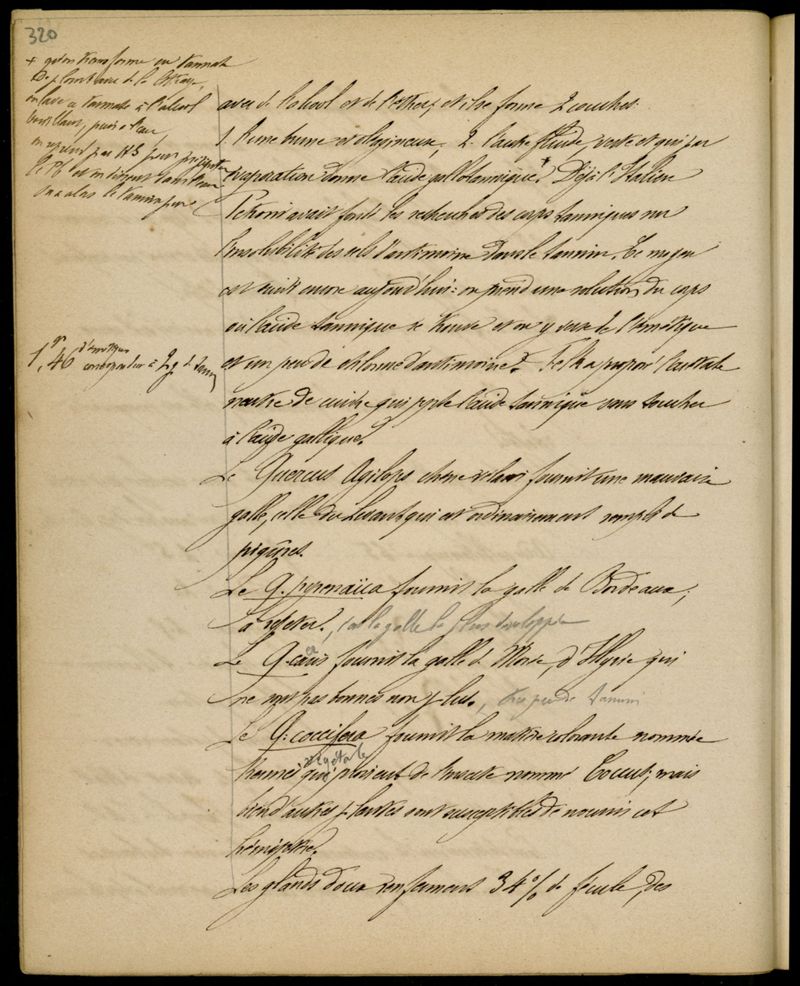 320
+ qu'on transforme en tannate
de plomb
on lave le tannate à l'alcool
bouillant, puis à l'eau
on reprend par HS pour précipiter
le Pb et on
avec de l'alcool et de l'éther, et il se forme 2 couches:
1. l'une brune et oléagineuse, 2. l'autre fluide, verte et qui par
évaporation donne l'acide gallotannique+. Déjà l'Italien
Petroni avait fondé les recherches des corps tanniques sur
l'insolubilité des sels d'antimoine dans le tannin. Ce moyen
est suivi encore aujourd'hui: on prend une solution du corps
où l'acide tannique se trouve et on y verse de l'émétique
1gr,40 d'émétique
correspondent à 2g de tannin
et un peu de chlorure d'antimoine?. Fehl a proposé l'acétate
neutre de cuivre qui ppte l'acide tannique sans toucher
à l'acide gallique.
Le Quercus Ægilops chêne velani fournit une mauvaise
galle, celle du Levant qui est ordinairement remplie de
piqûres.
Le Q. pyrenaïca fournit la galle de Bordeaux,
à rejeter., c'est la galle la plus développée
Le Q. cerris fournit la galle de Morée, d'Illyrie qui
ne sont pas bonnes non plus., très peu de tannin
Le Q. coccifera fournit la matière colorante nommée
kermès végétale qui provient de l'insecte nommé Coccus; mais
bien d'autres plantes sont susceptibles de nourrir cet
hémiptère.
Les glands doux renferment 34% de fécule, des